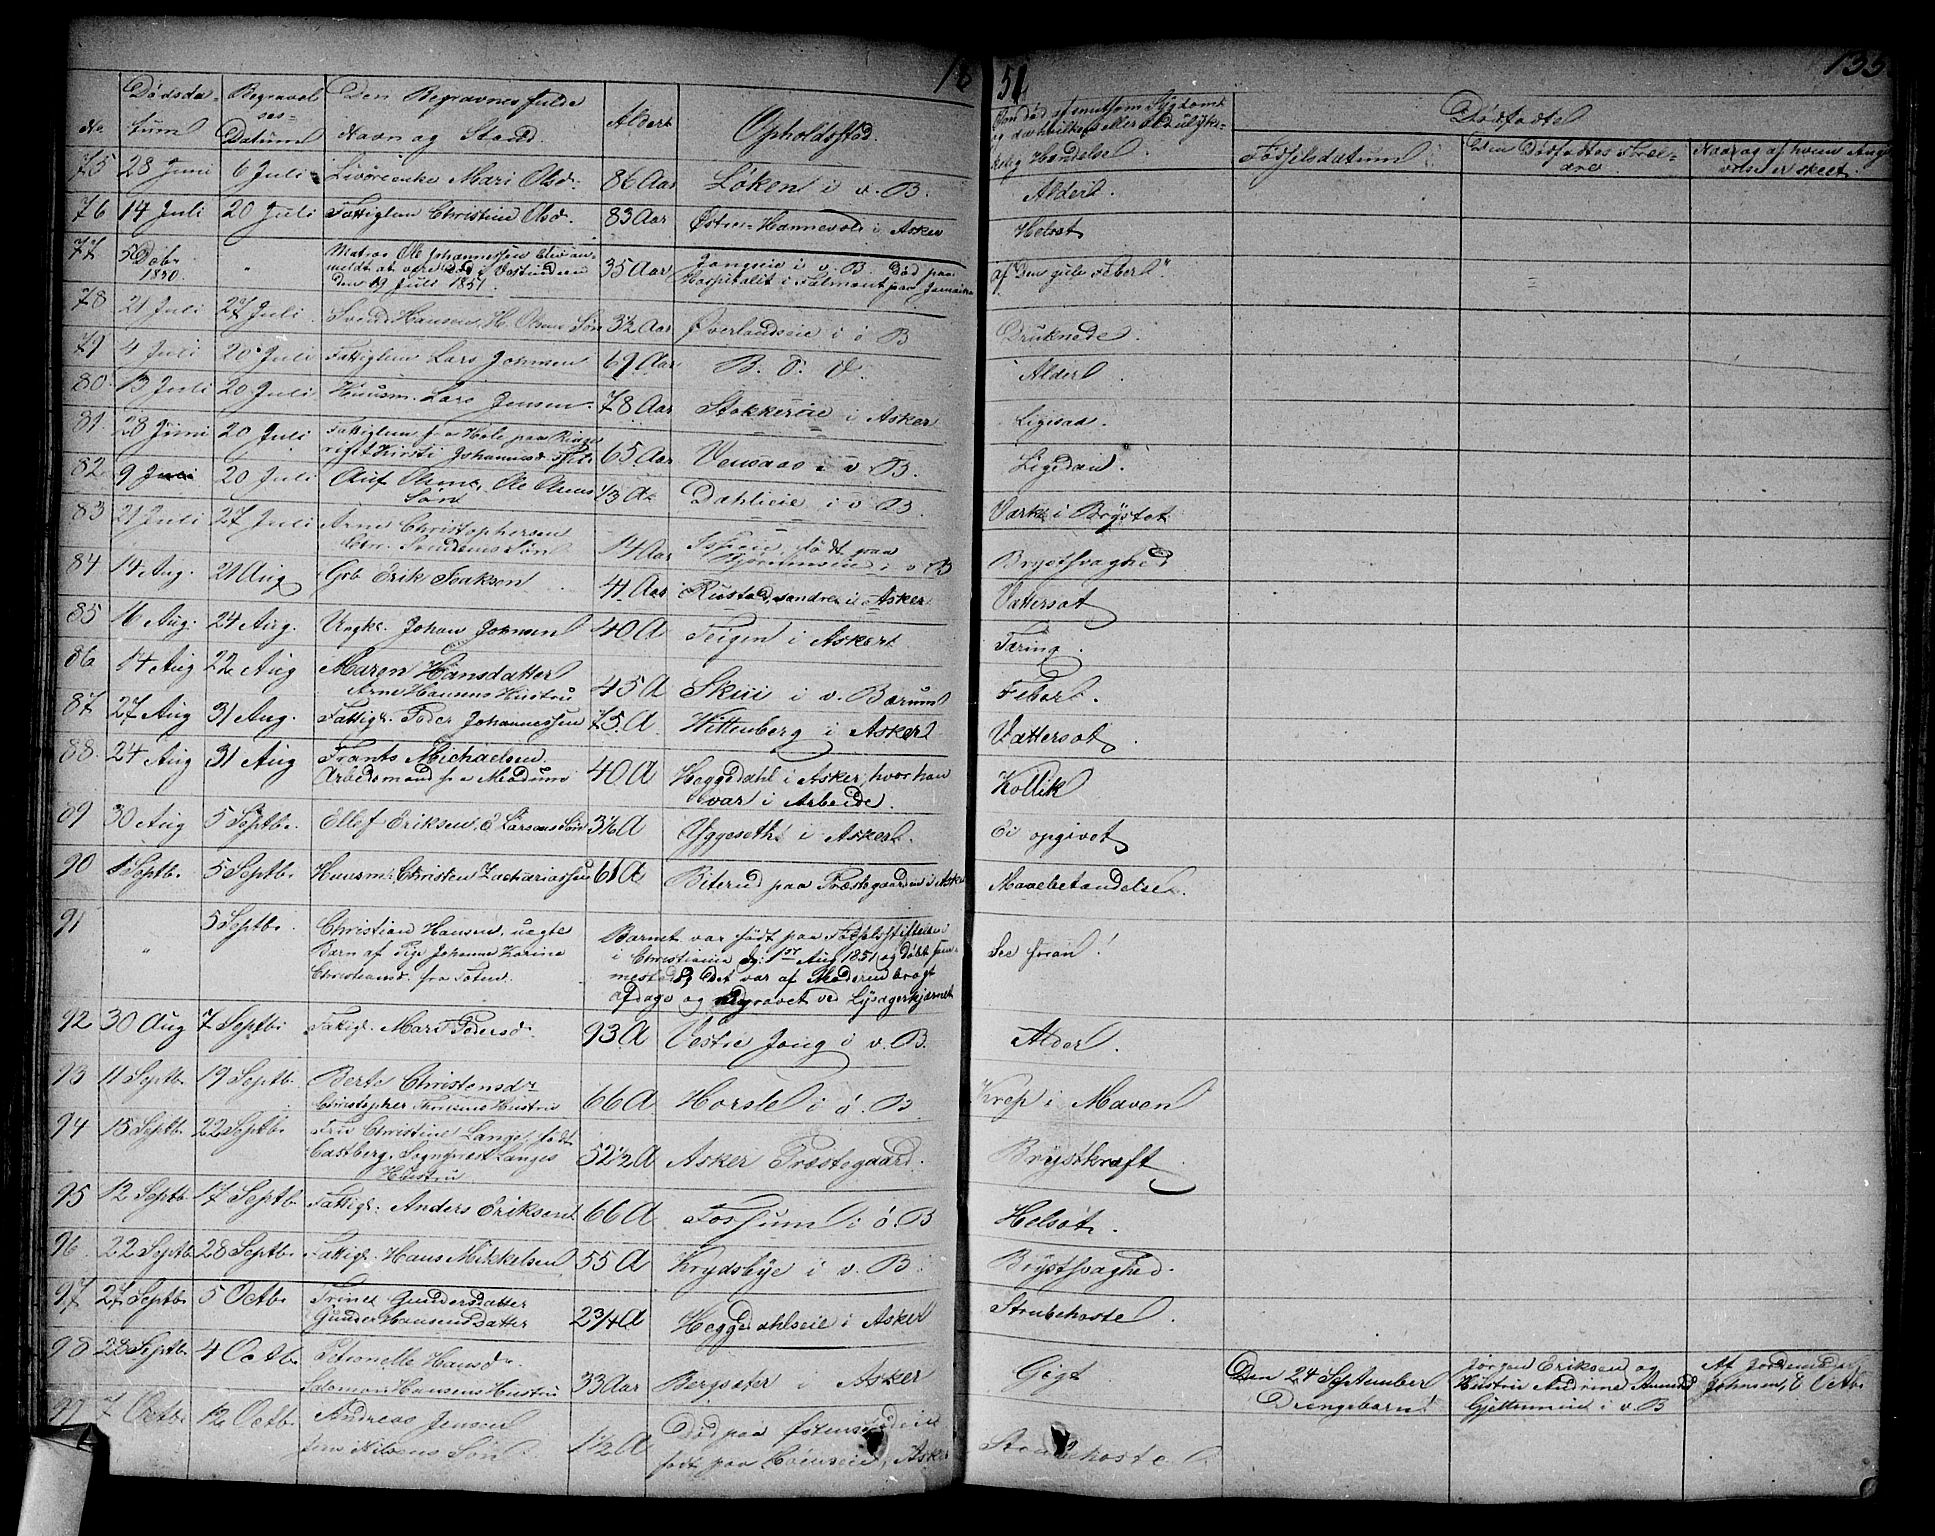 18 51 133
No Dødsda- tum Begravel ses- Datum Den Begravnes fulde Navn og Stand. Alder Opholdsstad.
Dødfødte
Fødselsdatum Den Dødfødtes Foræl- dre
75 28 Juni 6 Juli Mari Olsd. 86 Aar Løken i v. B. Alder.
76 14 Juli 20 Juli Fattiglem Christine Olsd. 83 Aar Østre Hannevold i Asker Helsot
77 5 Dcbr 1850 " Matros Ole Johannessen blev an-
meldt at være død i Vestindien
den 19 Juli 1851. 35 Aar Jongseie i v. B. død paa
Hospitalet i Falmont paa Jamaika af "Den gule Feber".
78 21 Juli 27 Juli Svend Hansen, H. Olsens Søn 3½ Aar Øverlandseie i ø B Druknede.
79 4 Juli 20 Juli Fattiglem Lars Johnsen 69 Aar B. Alder.
80. 13 Juli 20 Juli Huusm. Lars Jensen 78 Aar Stokkereie i Asker Ligesaa.
81 28 Juni 20 Juli Fattiglem fra Hole paa Ringe
rige Kirsti Johannesd. 65 Aar Vensaas i v. B. Ligedan.
82 9 Juli 20 Juli Oluf Olsen, Ole Olsens
Søn 43 A Dahlieie i v B. Værk i Brystet.
83 21 Juli 27 Juli Arne Christophersen
Søn 14 Aar født paa
i v B Brystsvaghed
84 14 Aug. 21 Aug Gbr Erik Isaksen 41 Aar Rustad, søndre i Asker Vattersot
85 16 Aug. 24 Aug. Ungkr. Johan Johnsen 40 A Teigen i Asker Tæring.
86 14 Aug 22 Aug Maren Hansdatter
Arne Hansens Hustru 45 A Skui i v. Bærum Feber.
87 27 Aug 31 Aug. Fattigl. Peder Johannessen 75 A Wittenberg i Asker Vattersot.
88. 24 Aug 31 Aug Frants Michaelsen.
Arbeidsmand fra Modum 40 A Heggedahl i Asker, hvor han
var i Arbeide. Kollik
89 30 Aug 5 Septbr. Ellef Eriksen, E Larsens Søn 3½ A Yggeseth i Asker. Ei opgivet
90 1 Septbr. 5 Septbr. Huusm. Christen Zachariassen 61 A Biterud paa Præstegaarden i Asker Mavebetændelse.
91 " 5 Septbr. Christian Hansen, uægte
Barn af Pige Johanne Karine
Christiansd. fra Toten. Barnet var født paa Fødselsstiftelsen
i Christiania d. 1ste Aug 1851 og døbt sam-
mested Det var af Moderen bragt
afdage og begravet ved Lysagerkjærnet See foran!
92 30 Aug 7 Septbr Fattigl. Mari Pedersd. 93 A Vestre Jong i v. B. Alder.
93 11 Septbr 19 Septbr. Berte Christensdr
Christopher Hustru 66 A Horsle i ø. B. Kræp i Maven
94 15 Septbr. 22 Septbr Fru Christine Lange, født
Castberg, Sognepræst Langes
Hustru 52½ A Asker Præstegaard. Brystkræft
95 12 Septbr 17 Septbr. Fattigl. Anders Eriksen 66 A Fossum i ø. B Helsot.
96. 22 Septbr 28 Septbr. Fattigl. Hans Mikkelsen 55 A Krydsbye i v. B. Brystsvaghed.
97 27 Septbr 5 Octbr. Trine Gundersdatter
Gunder Hansens Datter 2¾ A Heggedahlseie i Asker Strubehoste.
98 28 Septbr. 4 Octbr. Petronelle Hansdr.
Salomon Hansens Hustru 33 Aar Bergsæter i Asker Gigt
Den 24 September
Drengebarn! Jørgen Eriksen og
Hustru Andrine
Gjettumeie i v. B Af Jordemoder
Johnsen, 8 Octbr
99 7 Octbr 12 Octbr. Andreas Jensen
Jens Nilsens Søn 1½ A Død paa
født paa i Asker Strubehoste